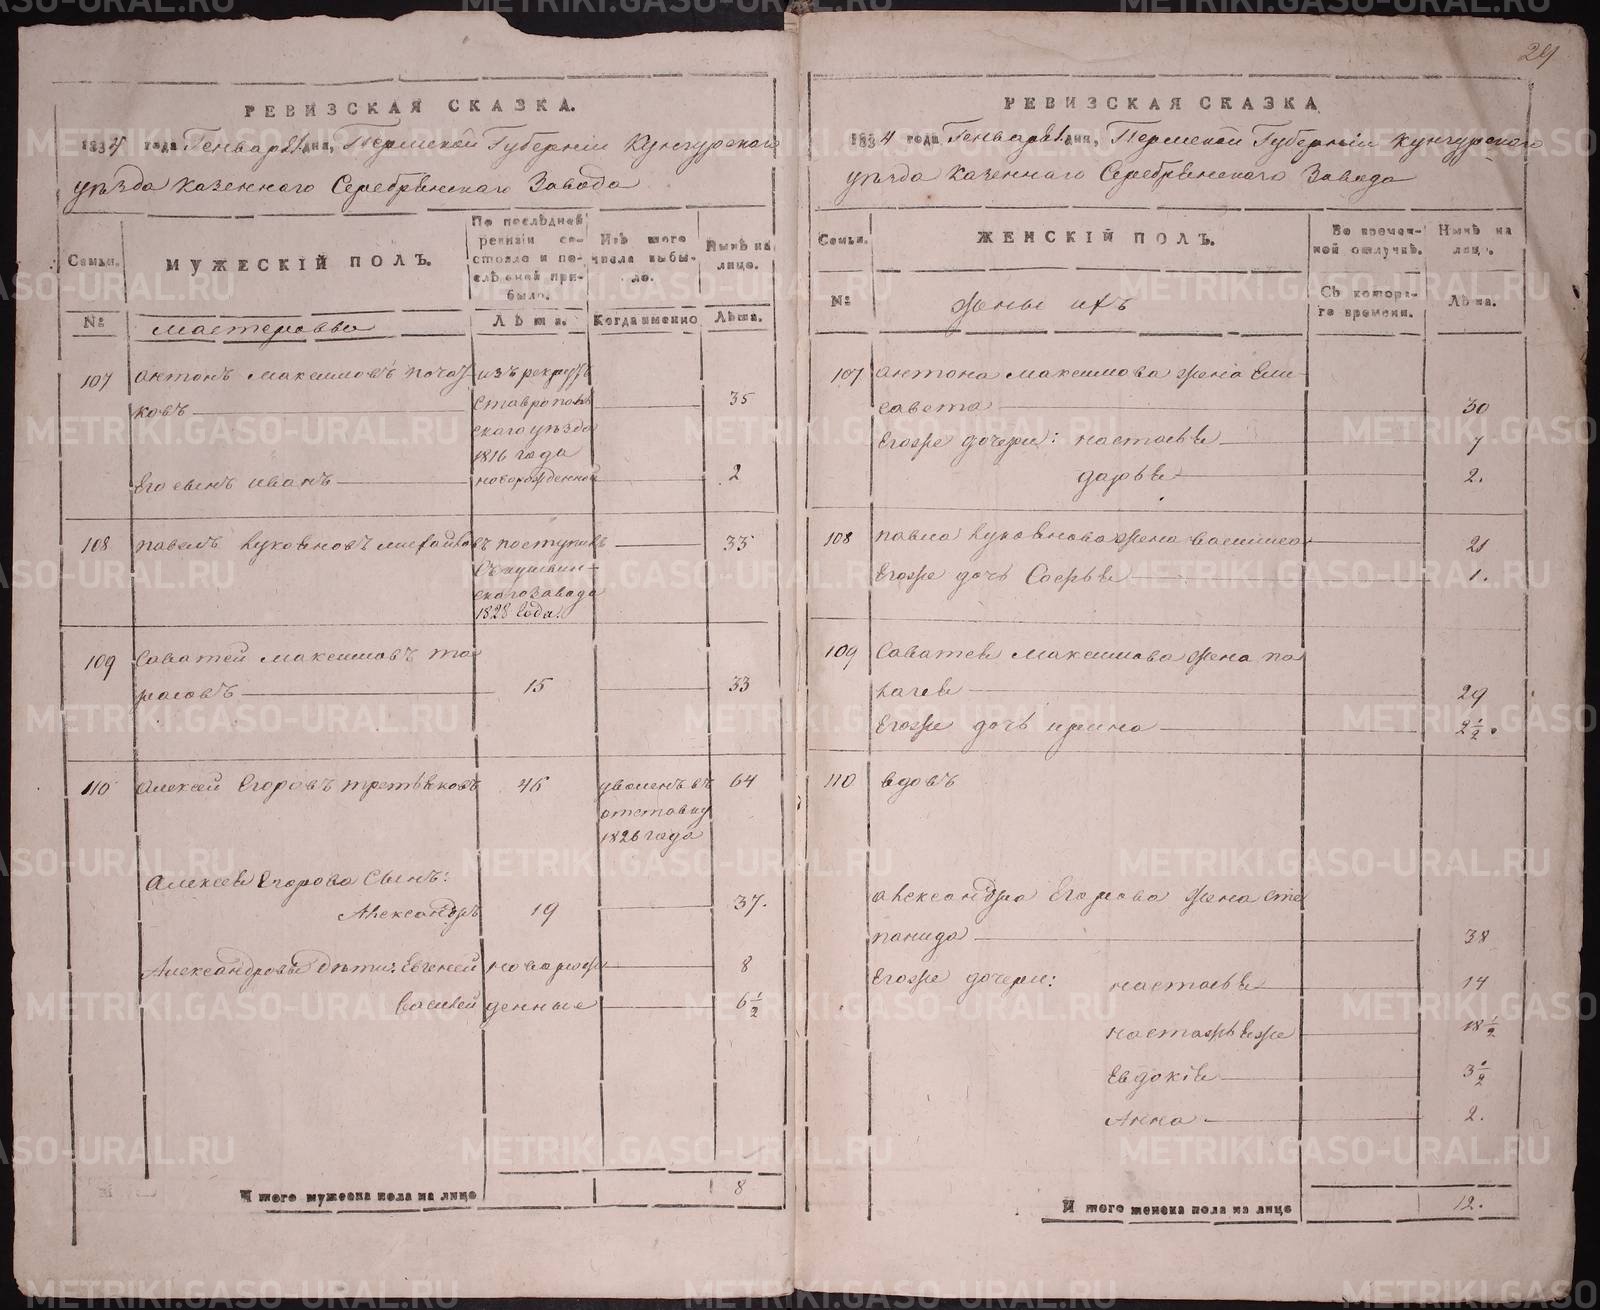 29
РЕВИЗСКАЯ СКАЗКА.
1834 года Генваря 21 дня, Пермской Губерніи Кунгурского
уѣзда казенного Серебрянского Завода
Семьи.
МУЖЕСКІЙ ПОЛЪ.
По послѣдней ревизіи состояло и послѣ оной прибыло.
Изъ того числа выбыло.
Нынѣ на лицо.
№
мастеровые
Лѣта.
Когда именно
Лѣта.
107 Антонъ Максимовъ изъ рекрутъ
ковъ Ставрополь 35
скаго уѣзда
1816 года
Его сынъ иванъ новорожденной 2
108 павелъ михайловъ поступилъ 33
съ кушвин-
скаго завода
1828 года.
109 Саватей Максимовъ та
расовъ 15 33
110 Алексей Егоровъ третьяковъ 45 уволенъ въ 64
отставку
1826 года
Алексея Егорова Сынъ:
Александръ 19 37.
Александровы дѣти: Евгеней новорож 8
василей денные 6 1/2
И того мужеска пола на лицо 8
РЕВИЗСКАЯ СКАЗКА
1834 года Генваря 21 дня, Пермской Губерніи Кунгурского
уѣзда казенного Серебрянского Завода
Семьи.
ЖЕНСКІЙ ПОЛЪ.
Во временной отлучкѣ.
Нынѣ на лицо.
№
жены ихъ
Съ котораго времени.
Лѣта.
107 Антона Максимова жена Ели-
савета 30
Егоже дочери: настасья 7
дарья 2.
108 павла жена василиса 21
Егоже дочь Софья 1.
109 Саватея Максимова жена пе
лагея 29
Егоже дочь ирина 2 1/2.
110 вдовъ
александра Егорова жена сте
панида 38
Егоже дочери: настасья 14
настасья же 18 1/2
Евдокія 3 1/2
Анна 2.
И того женска пола на лицо 12.
METRIKI.GASO-URAL.RU